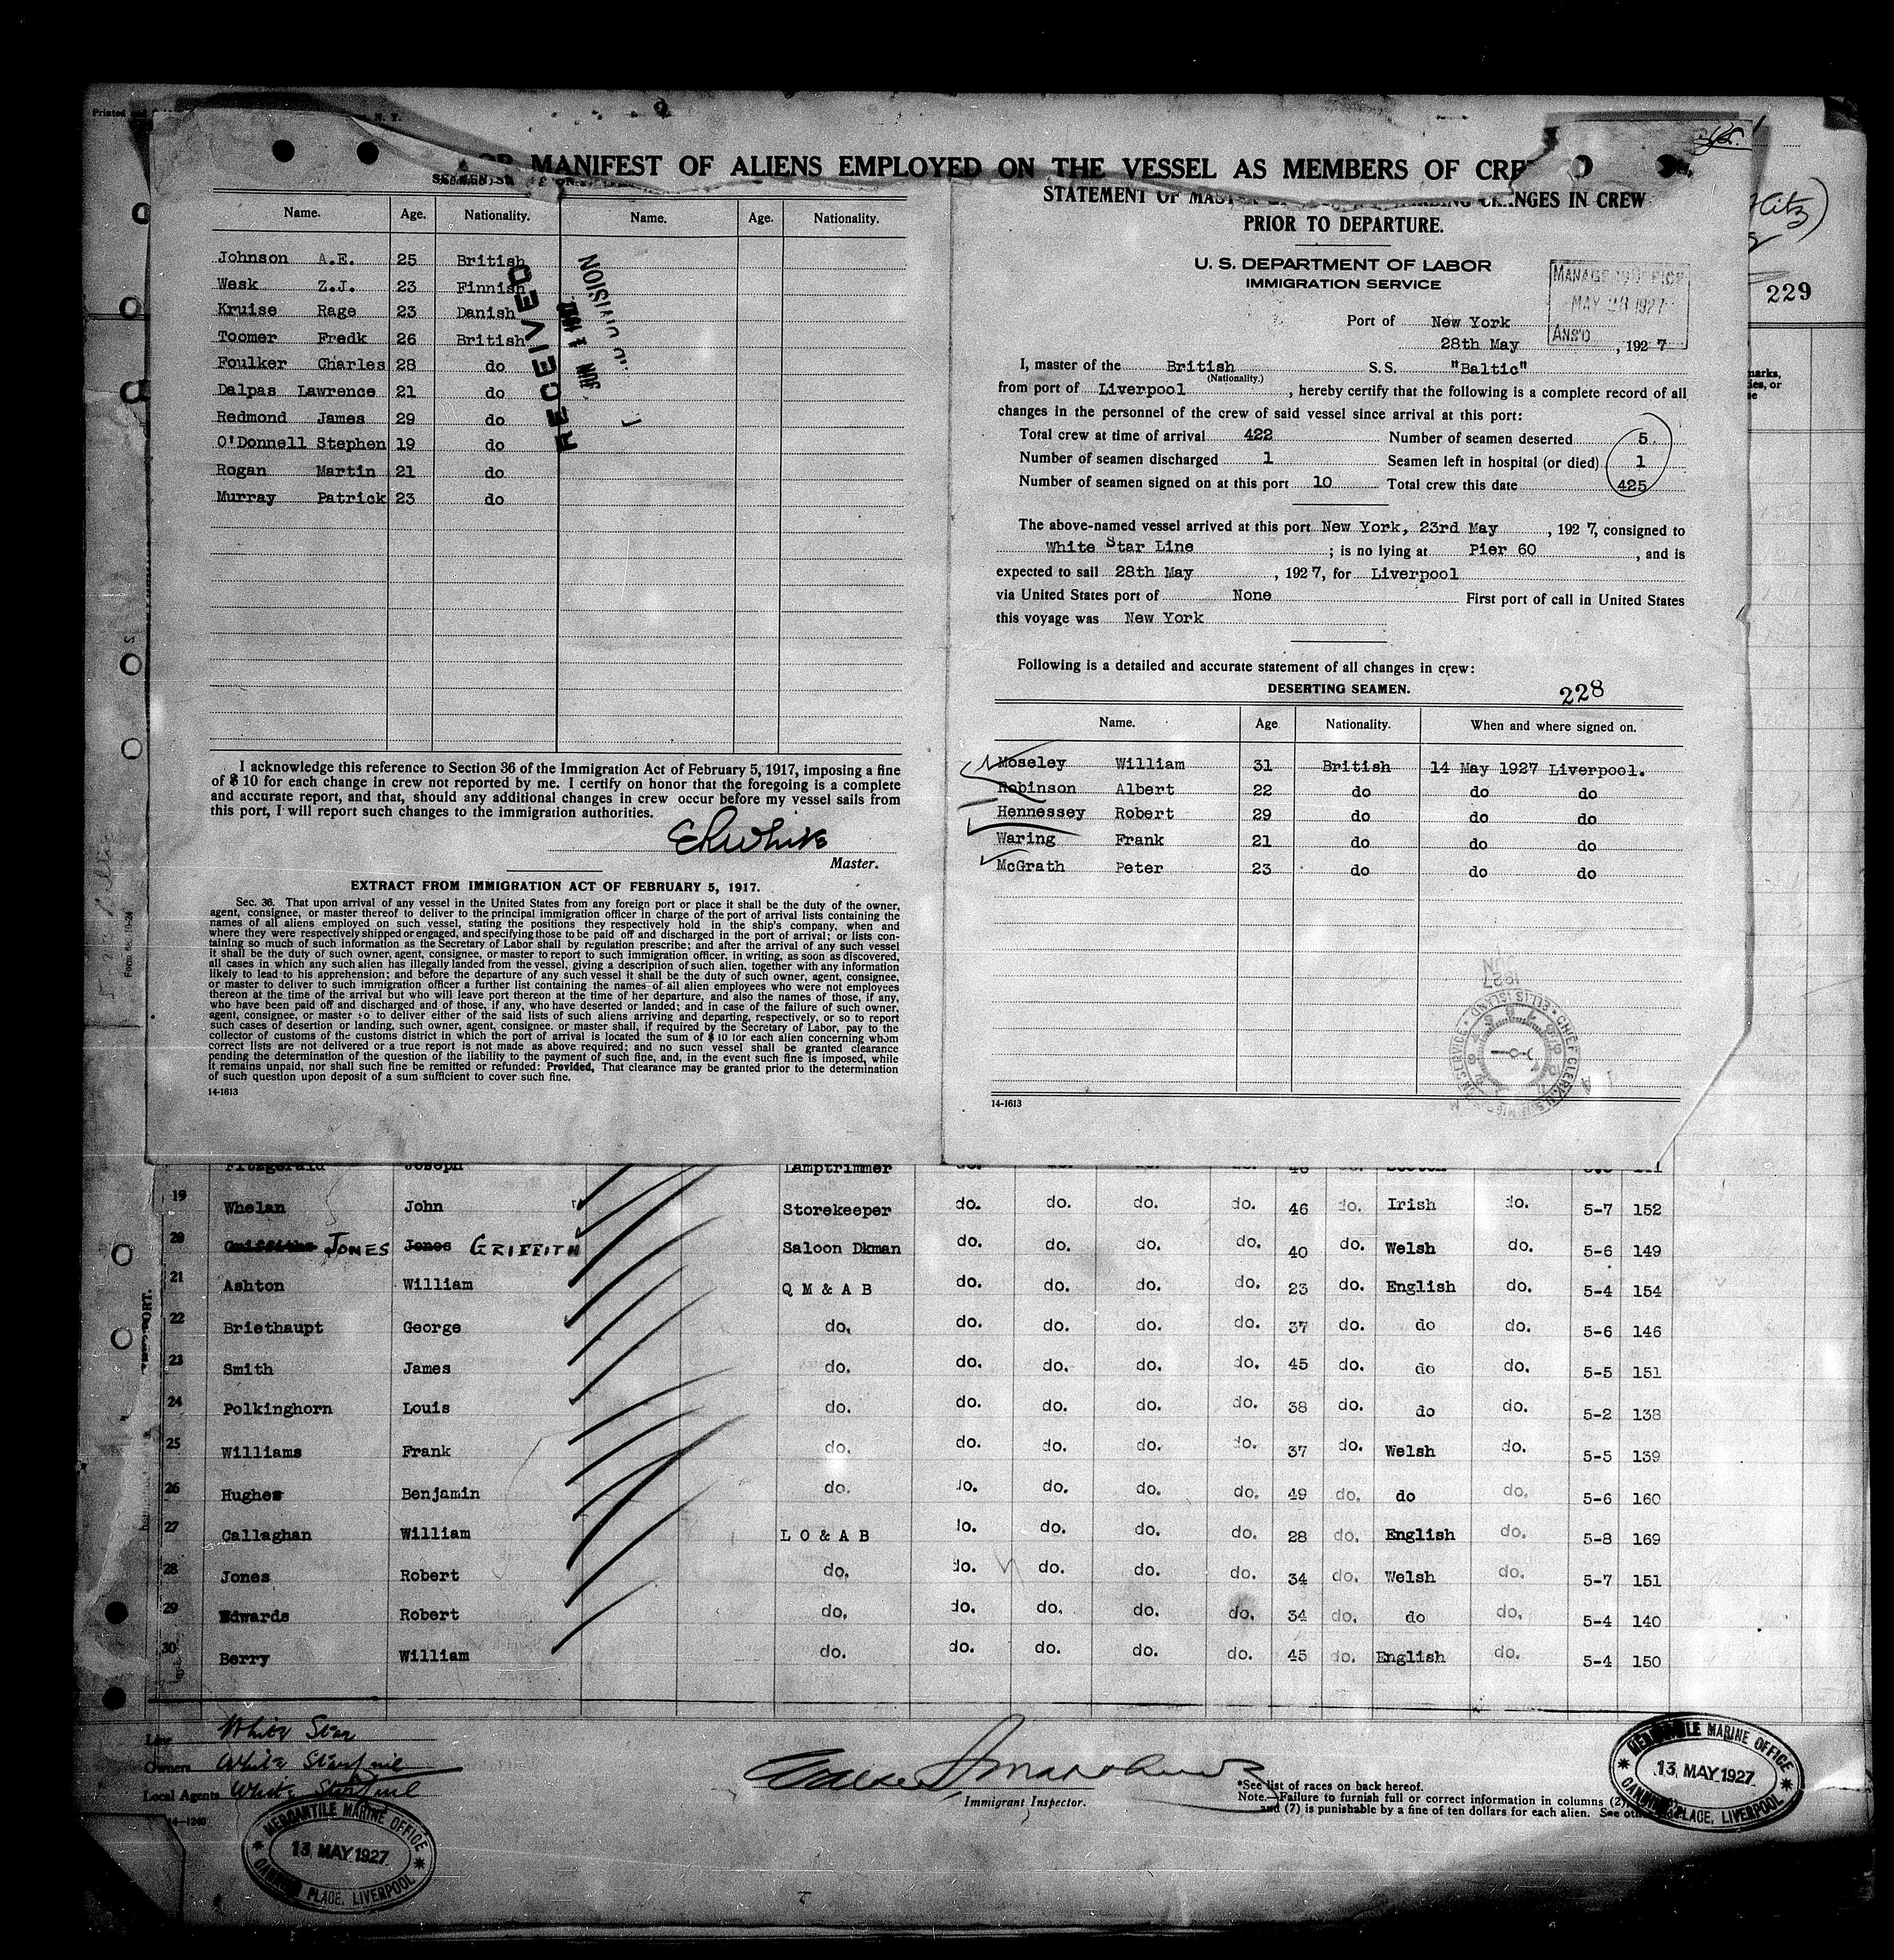 MANIFEST OF ALIENS EMPLOYED ON THE VESSEL AS MEMBERS OF
229
Name. Age. Nationality. Name. Age. Nationality.
Johnson A.E. 25 British
Wesk Z.J. 23 Finnish
Kruise Rage 23 Danish
Toomer Fredk 26 British
Foulker Charles 28 do
Dalpas Lawrence 21 do
Redmond James 29 do
O'Donnell Stephen 19 do
Rogan Martin 21 do
Murray Patrick 23 do
RECEIVED
DIVISION
I acknowledge this reference to Section 36 of the Immigration Act of February 5, 1917, imposing a fine
of $ 10 for each change in crew not reported by me. I certify on honor that the foregoing is a complete
and accurate report, and that, should any additional changes in crew occur before my vessel sails from
this port, I will report such changes to the immigration authorities.
Master.
EXTRACT FROM IMMIGRATION ACT OF FEBRUARY 5, 1917.
Sec. 36. That upon arrival of any vessel in the United States from any foreign port or place it shall be the duty of the owner,
agent, consignee, or master thereof to deliver to the principal immigration officer in charge of the port of arrival lists containing the
names of all aliens employed on such vessel, stating the positions they respectively hold in the ship's company, when and
where they were respectively shipped or engaged, and specifying those to be paid off and discharged in the port of arrival; or lists con-
taining so much of such information as the Secretary of Labor shall by regulation prescribe; and after the arrival of any such vessel
it shall be the duty of such owner, agent, consignee, or master to report to such immigration officer, in writing, as soon as discovered,
all cases in which any such alien has illegally landed from the vessel, giving a description of such alien, together with any information
likely to lead to his apprehension; and before the departure of any such vessel it shall be the duty of such owner, agent, consignee,
or master to deliver to such immigration officer a further list containing the names of all alien employees who were not employees
thereon at the time of the arrival but who will leave port thereon at the time of her departure, and also the names of those, if any,
who have been paid off and discharged and of those, if any, who have deserted or landed; and in case of the failure of such owner,
agent, consignee, or master so to deliver either of the said lists of such aliens arriving and departing, respectively, or so to report
such cases of desertion or landing, such owner, agent, consignee. or master shall, if required by the Secretary of Labor, pay to the
collector of customs of the customs district in which the port of arrival is located the sum of $ 10 for each alien concerning whom
correct lists are not delivered or a true report is not made as above required; and no such vessel shall be granted clearance
pending the determination of the question of the liability to the payment of such fine, and, in the event such fine is imposed, while
it remains unpaid, nor shall such fine be remitted or refunded: Provided, That clearance may be granted prior to the determination
of such question upon deposit of a sum sufficient to cover such fine.
14-1613
STATEMENT OF CHANGES IN CREW
PRIOR TO DEPARTURE.
U. S. DEPARTMENT OF LABOR
IMMIGRATION SERVICE
MANAGERS OFFICE
MAY 28 1927
ANS'D
Port of New York
28th May , 1927
I, master of the British S.S. "Baltic"
(Nationality.)
from port of Liverpool , hereby certify that the following is a complete record of all
changes in the personnel of the crew of said vessel since arrival at this port:
Total crew at time of arrival 422 Number of seamen deserted 5
Number of seamen discharged 1 Seamen left in hospital (or died) 1
Number of seamen signed on at this port 10 Total crew this date 425
The above-named vessel arrived at this port New York, 23rd May , 1927, consigned to
White Star Line ; is no lying at Pier 60 , and is
expected to sail 28th May , 1927, for Liverpool
via United States port of None First port of call in United States
this voyage was New York
Following is a detailed and accurate statement of all changes in crew:
DESERTING SEAMEN.
228
Name. Age Nationality. When and where signed on.
Moseley William 31 British 14 May 1927 Liverpool.
Robinson Albert 22 do do do
Hennessey Robert 29 do do do
Waring Frank 21 do do do
McGrath Peter 23 do do do
14-1613
Fitzgerald Joseph Lamptrimmer
19 Whelan John Storekeeper do. do. do. do. 46 do. Irish do. 5-7 152
20 Griffiths JONES Jones GRIFFITH Saloon Dkman do. do. do. do. 40 do. Welsh do. 5-6 149
21 Ashton William Q M & A B do. do. do. do. 23 do. English do. 5-4 154
22 Briethaupt George do. do. do. do. do. 37 do. do do. 5-6 146
23 Smith James do. do. do. do. do. 45 do. do do. 5-5 151
24 Polkinghorn Louis do. do. do. do. do. 38 do. do do. 5-2 138
25 Williams Frank do. do. do. do. do. 37 do. Welsh do. 5-5 139
26 Hughes Benjamin do. do. do. do. do. 49 do. do do. 5-6 160
27 Callaghan William L O & A B do. do. do. do. 28 do. English do. 5-8 169
28 Jones Robert do. do. do. do. do. 34 do. Welsh do. 5-7 151
29 Edwards Robert do. do. do. do. do. 34 do. do do. 5-4 140
30 Berry William do. do. do. do. do. 45 do. English do. 5-4 150
Line White Star
Owners White Star Line
Local Agents White Star Line
14-1240
Immigrant Inspector.
*See list of races on back hereof.
Note.—Failure to furnish full or correct information in columns (2),
and (7) is punishable by a fine of ten dollars for each alien. See
MERCANTILE MARINE OFFICE
13 MAY 1927
CANNING PLACE, LIVERPOOL
MERCANTILE MARINE OFFICE
13 MAY 1927
CANNING PLACE, LIVERPOOL